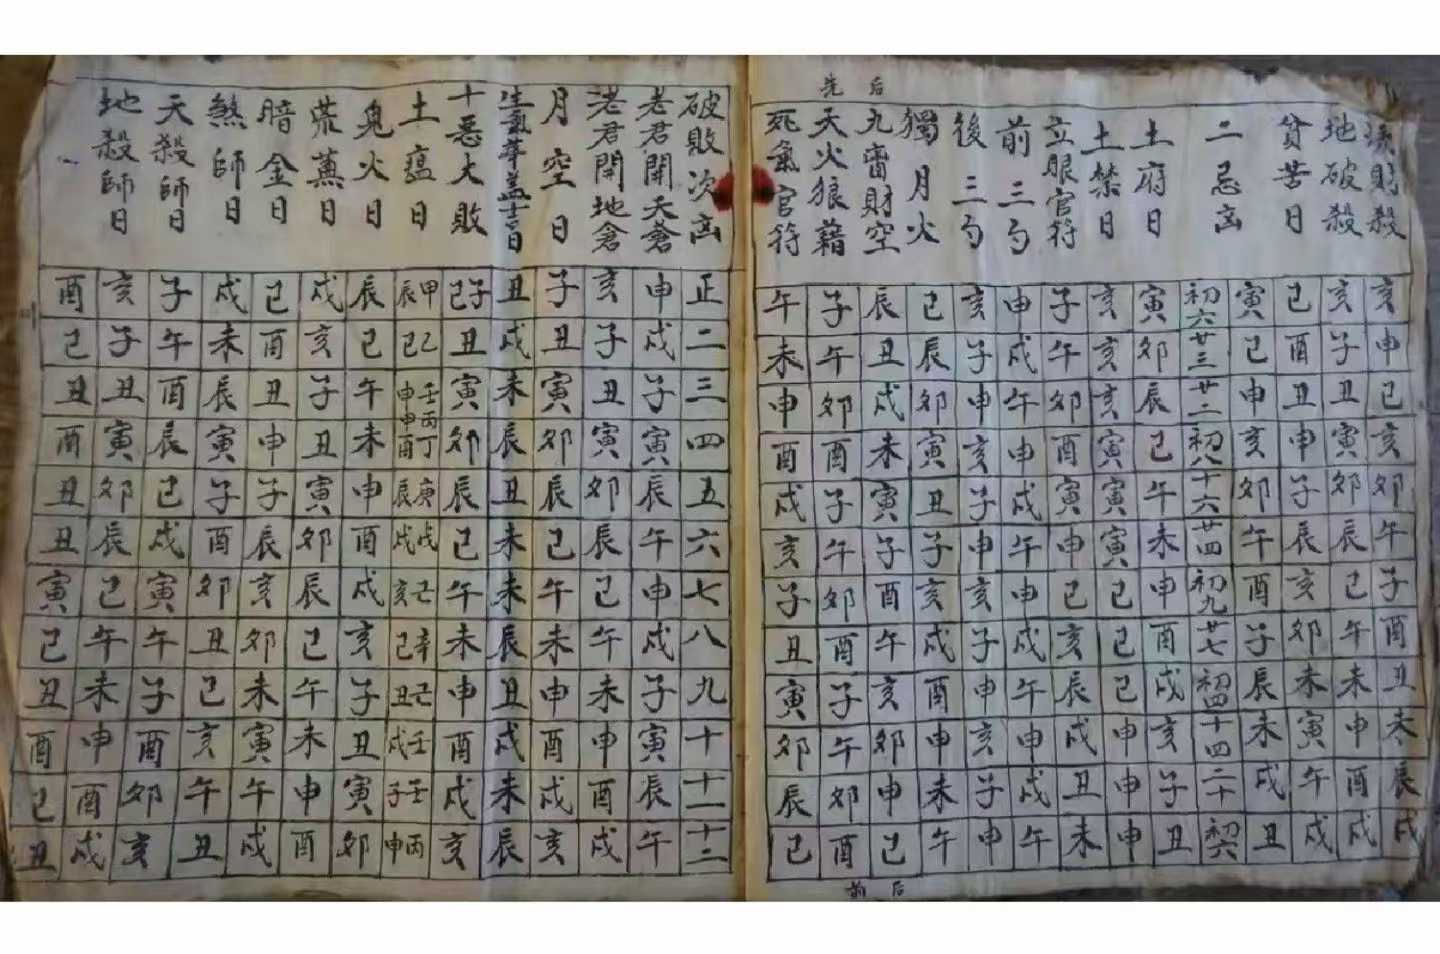 先 后
財殺 亥 申 巳 亥 卯 午 子 酉 丑 未 辰 戌
地破殺 亥 子 丑 寅 卯 辰 巳 午 未 申 酉 戌
貧苦日 巳 酉 丑 申 子 辰 亥 卯 未 寅 午 戌
二忌凶 寅 巳 申 亥 卯 午 酉 子 辰 未 戌 丑
初六 廿三 廿二 初八 十六 廿四 初九 廿七 初四 十四 二十 初六
土府日 寅 卯 辰 巳 午 未 申 酉 戌 亥 子 丑
土禁日 亥 亥 亥 寅 寅 寅 巳 巳 巳 申 申 申
立眼官符 子 午 卯 酉 寅 申 巳 亥 辰 戌 丑 未
前三勾 申 戌 午 申 戌 午 申 戌 午 申 戌 午
後三勾 亥 子 申 亥 子 申 亥 子 申 亥 子 申
獨月火 巳 辰 卯 寅 丑 子 亥 戌 酉 申 未 午
九財空 辰 丑 戌 未 寅 子 酉 午 亥 卯 申 巳
天火狼藉 子 午 卯 酉 子 午 卯 酉 子 午 卯 酉
死氣官符 午 未 申 酉 戌 亥 子 丑 寅 卯 辰 巳
前 后
破敗次凶 正 二 三 四 五 六 七 八 九 十 十一 十二
老君開天倉 申 戌 子 寅 辰 午 申 戌 子 寅 辰 午
老君開地倉 亥 子 丑 寅 卯 辰 巳 午 未 申 酉 戌
月空日 子 丑 寅 卯 辰 巳 午 未 申 酉 戌 亥
生氣華蓋十二日 丑 戌 未 辰 丑 未 未 辰 丑 戌 未 辰
十惡大敗 子巳 丑 寅 卯 辰 巳 午 未 申 酉 戌 亥
土瘟日 甲辰 乙巳 壬申 丙申 丁酉 庚辰 戊戌 亥 辛巳 丑 壬戌 壬子 丙申
鬼火日 辰 巳 午 未 申 酉 戌 亥 子 丑 寅 卯
荒蕪日 戌 亥 子 丑 寅 卯 辰 巳 午 未 申 酉
暗金日 巳 酉 丑 申 子 辰 亥 卯 未 寅 午 戌
煞師日 戌 未 辰 寅 子 酉 卯 丑 巳 亥 午 丑
天殺師日 子 午 酉 辰 巳 戌 寅 午 子 酉 卯 亥
地殺師日 亥 子 丑 寅 卯 辰 巳 午 未 申 酉 戌
酉 巳 丑 酉 丑 丑 寅 巳 丑 酉 巳 丑